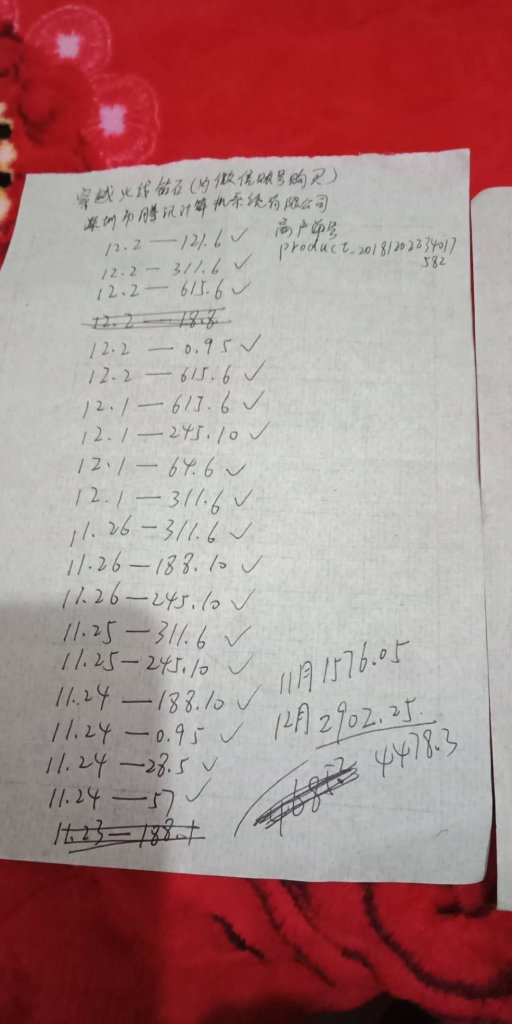 穿越火线钻石(为微信账号购买)
深圳市腾讯计算机系统有限公司
商户单号
product_20181202234017
582
12.2—121.6✓
12.2—311.6✓
12.2—615.6✓
12.2—18.8
12.2—0.95✓
12.2—615.6✓
12.1—615.6✓
12.1—245.10✓
12.1—64.6✓
12.1—311.6✓
11.26—311.6✓
11.26—188.10✓
11.26—245.10✓
11.25—311.6✓
11.25—245.10✓
11.24—188.10✓
11.24—0.95✓
11.24—28.5✓
11.24—57✓
11.23—188.1
11月1576.05
12月2902.25
4478.3